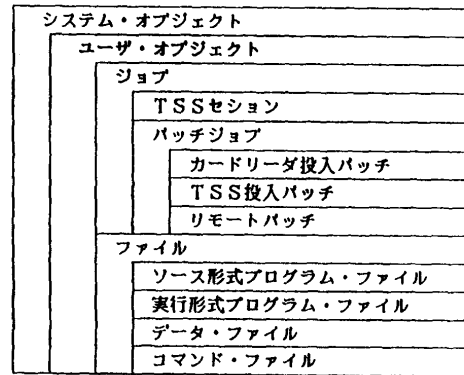 システム・オブジェクト
ユーザ・オブジェクト
ジョブ
TSSセション
バッチジョブ
カードリーダ投入バッチ
TSS投入バッチ
リモートバッチ
ファイル
ソース形式プログラム・ファイル
実行形式プログラム・ファイル
データ・ファイル
コマンド・ファイル